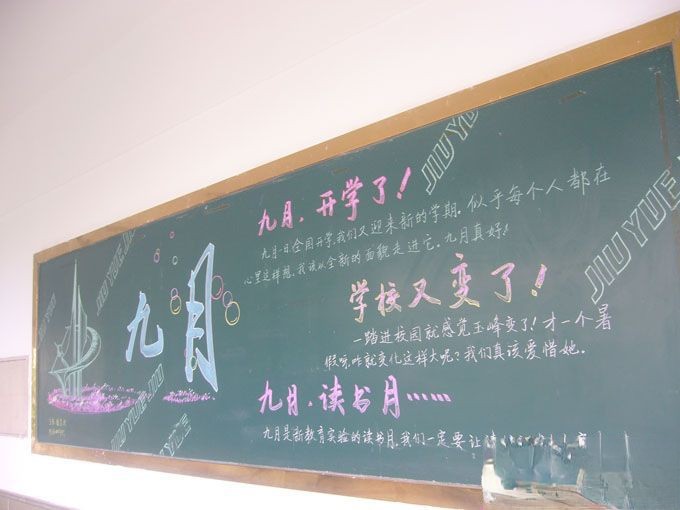 九月
九月，开学了！
九月一日全国开学，我们又迎来新的学期。似乎每个人都在
心里这样想，我该以全新的面貌走进它，九月真好！
学校又变了！
一踏进校园就感觉玉峰变了！才一个暑
假呀，咋就变化这样大呢？我们真该爱惜她。
九月，读书月……
九月是新教育实验的读书月，我们一定要让
JIU YUE
JIU YUE
JIU YUE
JIU YUE